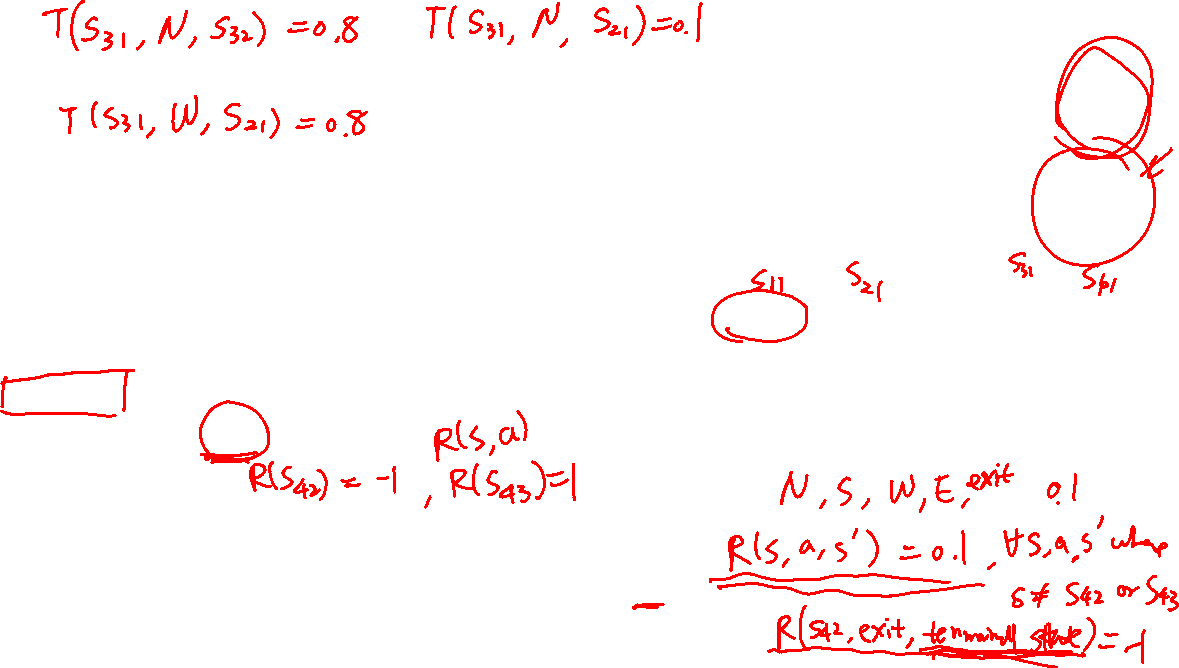 T(S31, N, S32) = 0.8 T(S31, N, S21) = 0.1
T(S31, W, S21) = 0.8
S31
S11 S21 S41
R(s, a)
R(S42) = -1, R(S43) = 1
N, S, W, E, exit 0.1
R(s, a, s') = 0.1, ∀s, a, s' where
s ≠ S42 or S43
R(S42, exit, terminal state) = -1